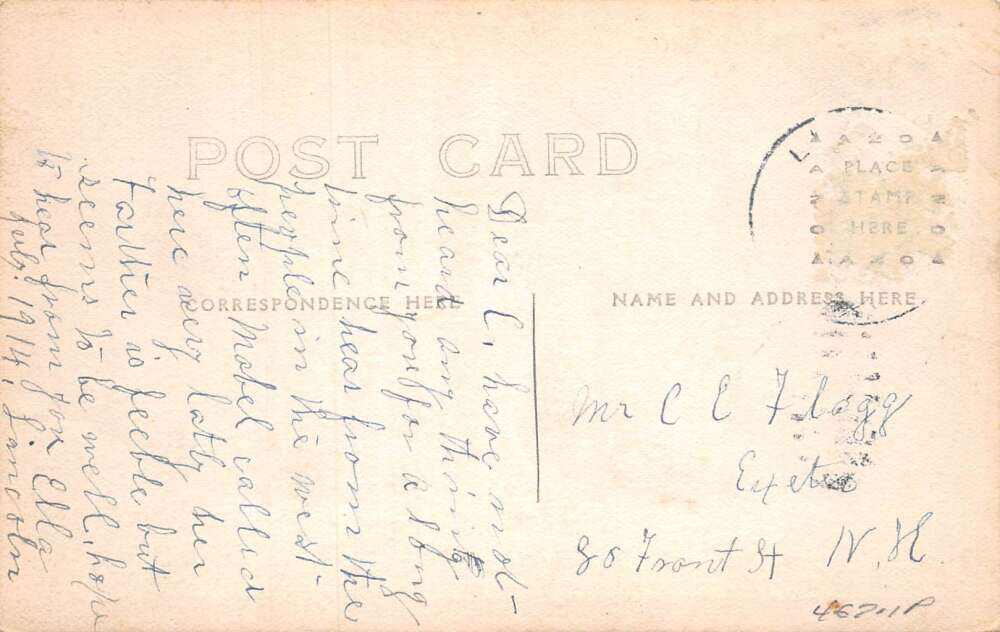 POST CARD
CORRESPONDENCE HERE
NAME AND ADDRESS HERE
AZO
PLACE
STAMP
HERE
AZO
Dear C, have not
heard any thing
from you for a long
time hear from the
people in the west
often Mabel called
here very lately her
Farther is feeble but
seems to be well, hope
to hear from you Ella
July. 1914, Lincoln
Mr C E Flagg
Exeter
80 Front St N. H